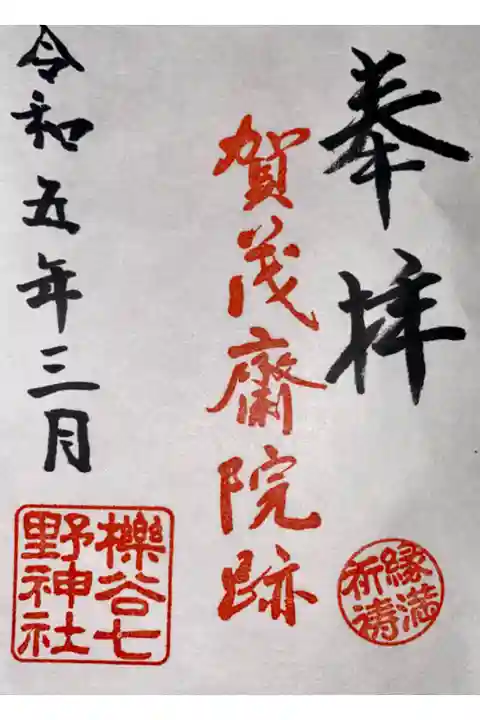 奉拝
賀茂齋院跡
令和五年三月
縁満
祈祷
櫟谷七
野神社